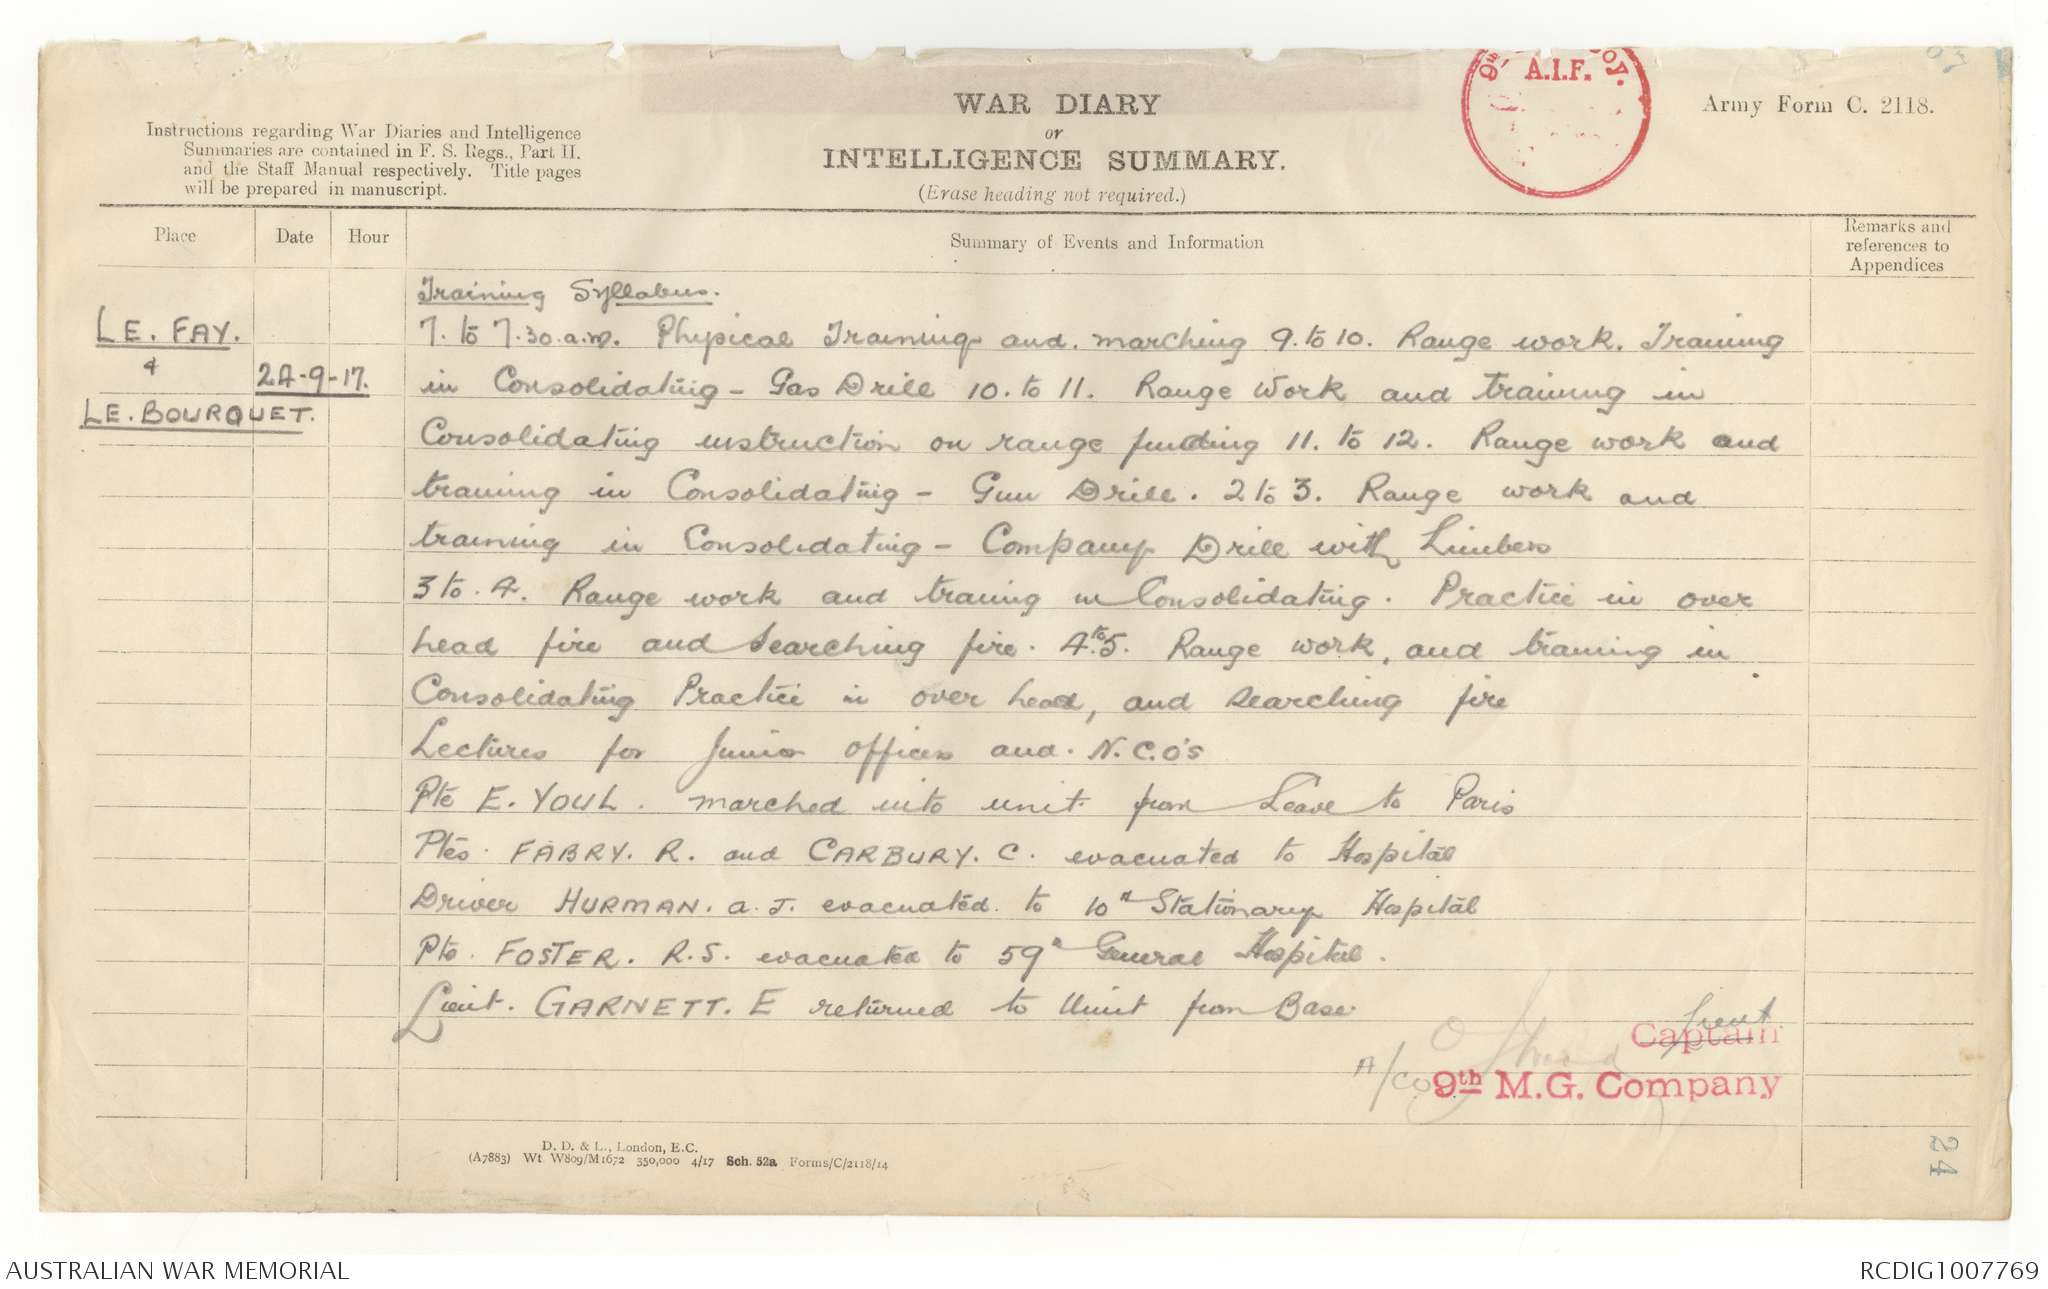 WAR DIARY
or
INTELLIGENCE SUMMARY.
(Erase heading not required.)
Army Form C. 2118.
A.I.F.
Instructions regarding War Diaries and Intelligence
Summaries are contained in F. S. Regs., Part II.
and the Staff Manual respectively. Title pages
will be prepared in manuscript.
Place Date Hour Summary of Events and Information Remarks and references to Appendices
LE. FAY.
&
LE. BOURQUET.
24-9-17.
Training Syllabus.
7. to 7.30.a.m. Physical Training and. marching 9. to 10. Range work. Training
in Consolidating - Gas Drill 10. to 11. Range Work and training in
Consolidating instruction on range finding 11. to 12. Range work and
training in Consolidating - Gun Drill. 2 to 3. Range work and
training in Consolidating - Company Drill with Limbers
3 to. 4. Range work and traing in Consolidating. Practice in over
head fire and Searching fire. 4. to 5. Range work, and training in
Consolidating Practice in over head, and searching fire
Lectures for Junior Officers and. N.C.O's
Pte E. YOUL. marched into unit from Leave to Paris
Ptes. FABRY. R. and CARBURY. C. evacuated to Hospital
Driver HURMAN. A. J. evacuated. to 10th Stationary Hospital
Pte. FOSTER. R.S. evacuated to 59th General Hospital.
Lieut. GARNETT. E returned to Unit from Base.
Lieut
Captain
A/CO 9th M.G. Company
24
D. D. & L., London, E.C.
(A7883) Wt W809/M1672 350,000 4/17 Sch. 52a Forms/C/2118/14
AUSTRALIAN WAR MEMORIAL
RCDIG1007769